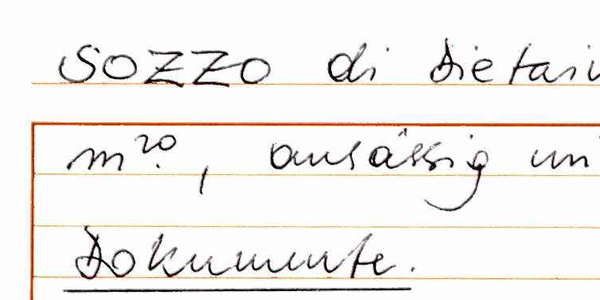 SOZZO di Dietaiu
m.²⁰, ansässig un
Dokumente.